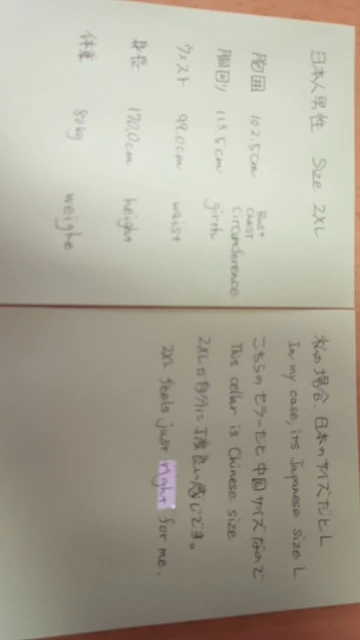 日本人男性 Size 2XL
胸囲 102.5cm Bust Chest Circumference
胴回り 113.5cm girth
ウェスト 99.0cm waist
身長 170.0cm height
体重 80kg weighe
私の場合、日本のサイズだとL
In my case, its Japanese size L
こちらのセラーだと中国サイズなので
This cellar is Chinese size
2XLは自分に丁度良い感じです。
2XL feels just right for me.